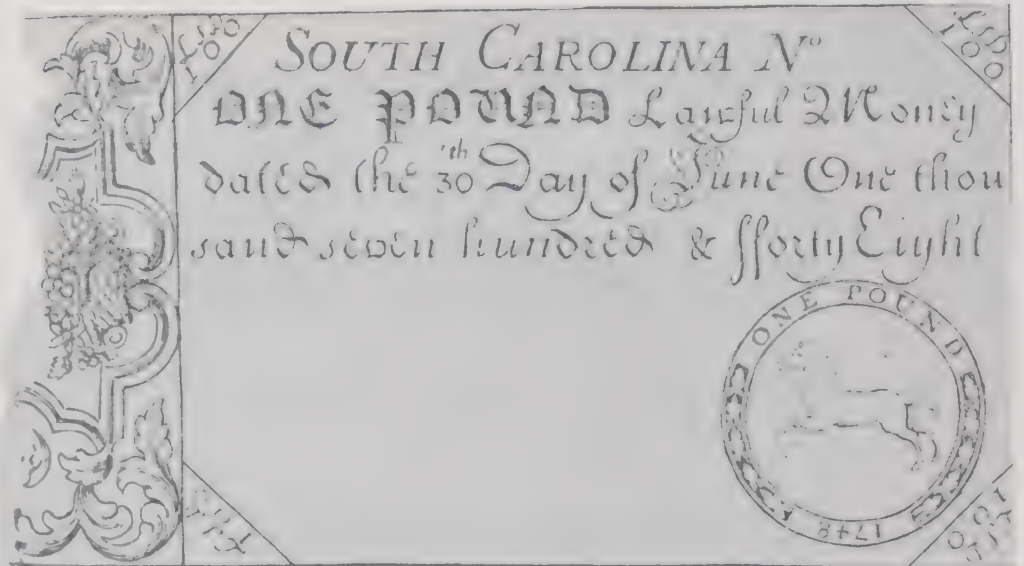 SOUTH CAROLINA No
ONE POUND Lawful Money
dated the 30th Day of June One thou
sand seven hundred & fforty Eight
ONE POUND
1748